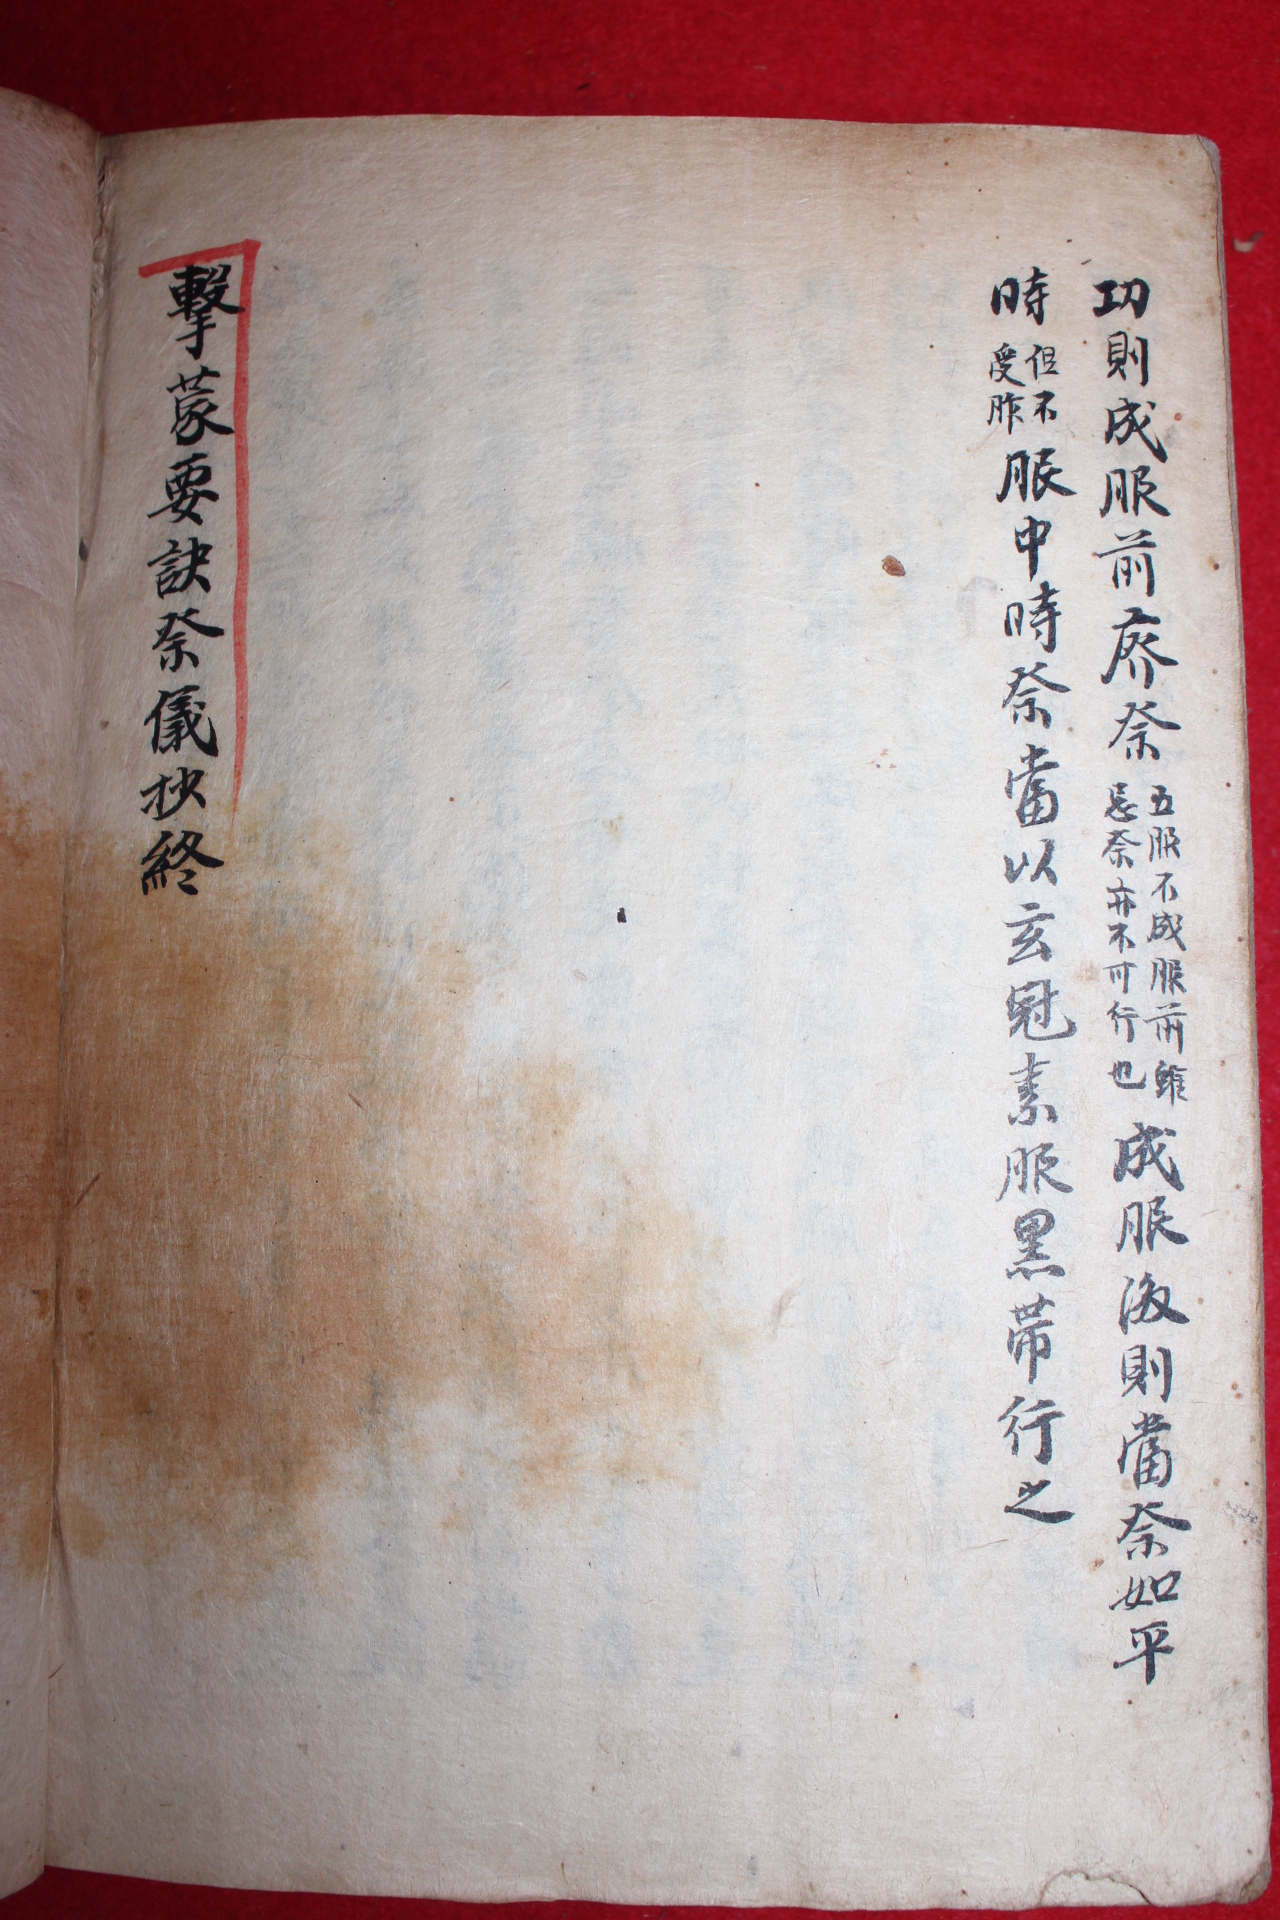 功則成服前廢祭五服不成服前雖忌祭亦不可行也成服後則當祭如平
時但不受胙服中時祭當以玄冠素服黑帶行之
擊蒙要訣祭儀抄終